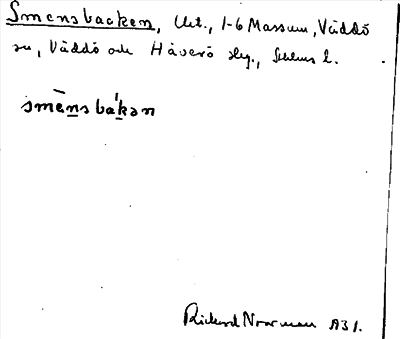 Smensbacken, Utt., 1-6 Massum, Väddö
sn, Väddö och Häverö skg., Sthlms l.
smēnsbákən
Rickard Norrman 1931.